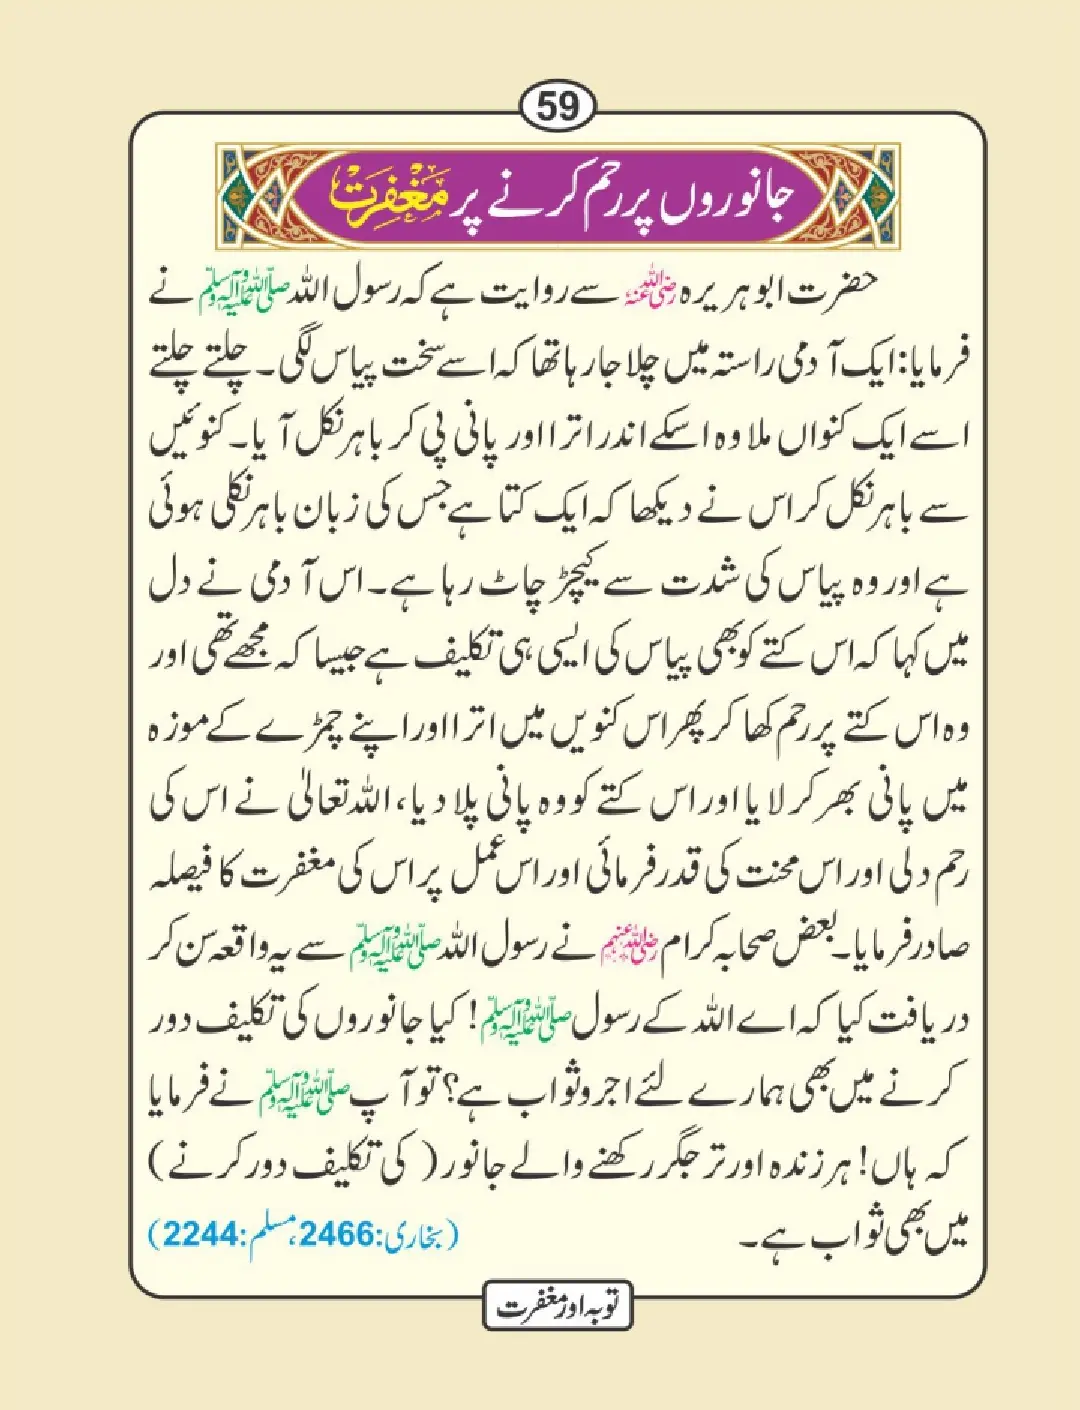 59
جانوروں پر رحم کرنے پر مغفرت
حضرت ابوہریرہ رضی اللہ عنہ سے روایت ہے کہ رسول اللہ صلی اللہ علیہ وآلہ وسلم نے
فرمایا: ایک آدمی راستہ میں چلا جا رہا تھا کہ اسے سخت پیاس لگی۔ چلتے چلتے
اسے ایک کنواں ملا وہ اسکے اندر اترا اور پانی پی کر باہر نکل آیا۔ کنوئیں
سے باہر نکل کر اس نے دیکھا کہ ایک کتا ہے جس کی زبان باہر نکلی ہوئی
ہے اور وہ پیاس کی شدت سے کیچڑ چاٹ رہا ہے۔ اس آدمی نے دل
میں کہا کہ اس کتے کو بھی پیاس کی ایسی ہی تکلیف ہے جیسا کہ مجھے تھی اور
وہ اس کتے پر رحم کھا کر پھر اس کنویں میں اترا اور اپنے چمڑے کے موزہ
میں پانی بھر کر لایا اور اس کتے کو وہ پانی پلا دیا، اللہ تعالیٰ نے اس کی
رحم دلی اور اس محنت کی قدر فرمائی اور اس عمل پر اس کی مغفرت کا فیصلہ
صادر فرمایا۔ بعض صحابہ کرام رضی اللہ عنہم نے رسول اللہ صلی اللہ علیہ وآلہ وسلم سے یہ واقعہ سن کر
دریافت کیا کہ اے اللہ کے رسول صلی اللہ علیہ وآلہ وسلم! کیا جانوروں کی تکلیف دور
کرنے میں بھی ہمارے لئے اجر و ثواب ہے؟ تو آپ صلی اللہ علیہ وآلہ وسلم نے فرمایا
کہ ہاں! ہر زندہ اور تر جگر رکھنے والے جانور (کی تکلیف دور کرنے)
میں بھی ثواب ہے۔ (بخاری: 2466، مسلم: 2244)
توبہ اور مغفرت